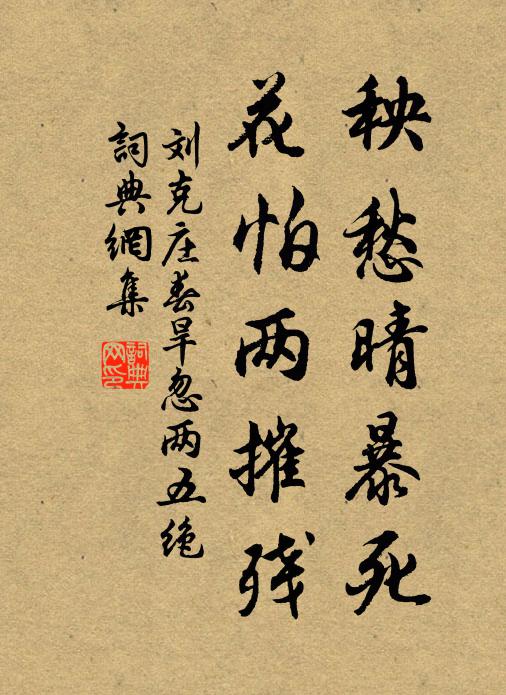 秧愁晴暴死
花怕两摧残
刘克庄春旱忽两五绝
詞典網集
詞典网印